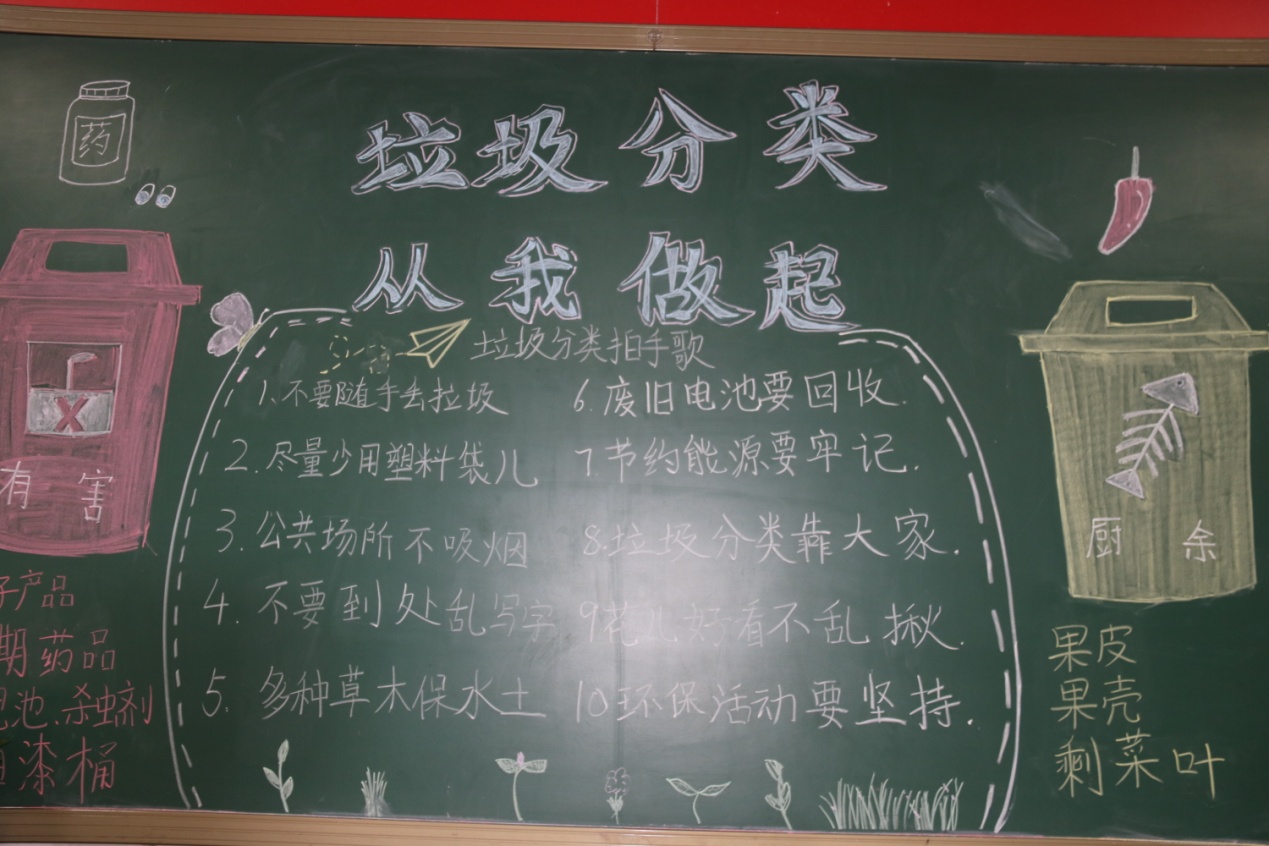 药
垃圾分类
从我做起
垃圾分类拍手歌
1.不要随手丢垃圾
2.尽量少用塑料袋儿
3.公共场所不吸烟
4.不要到处乱写字
5.多种草木保水土
6.废旧电池要回收.
7节约能源要牢记.
8.垃圾分类靠大家.
9花儿好看不乱揪.
10环保活动要坚持.
X
有害
子产品
期药品
电池.杀虫剂
漆桶
厨余
果皮
果壳
剩菜叶